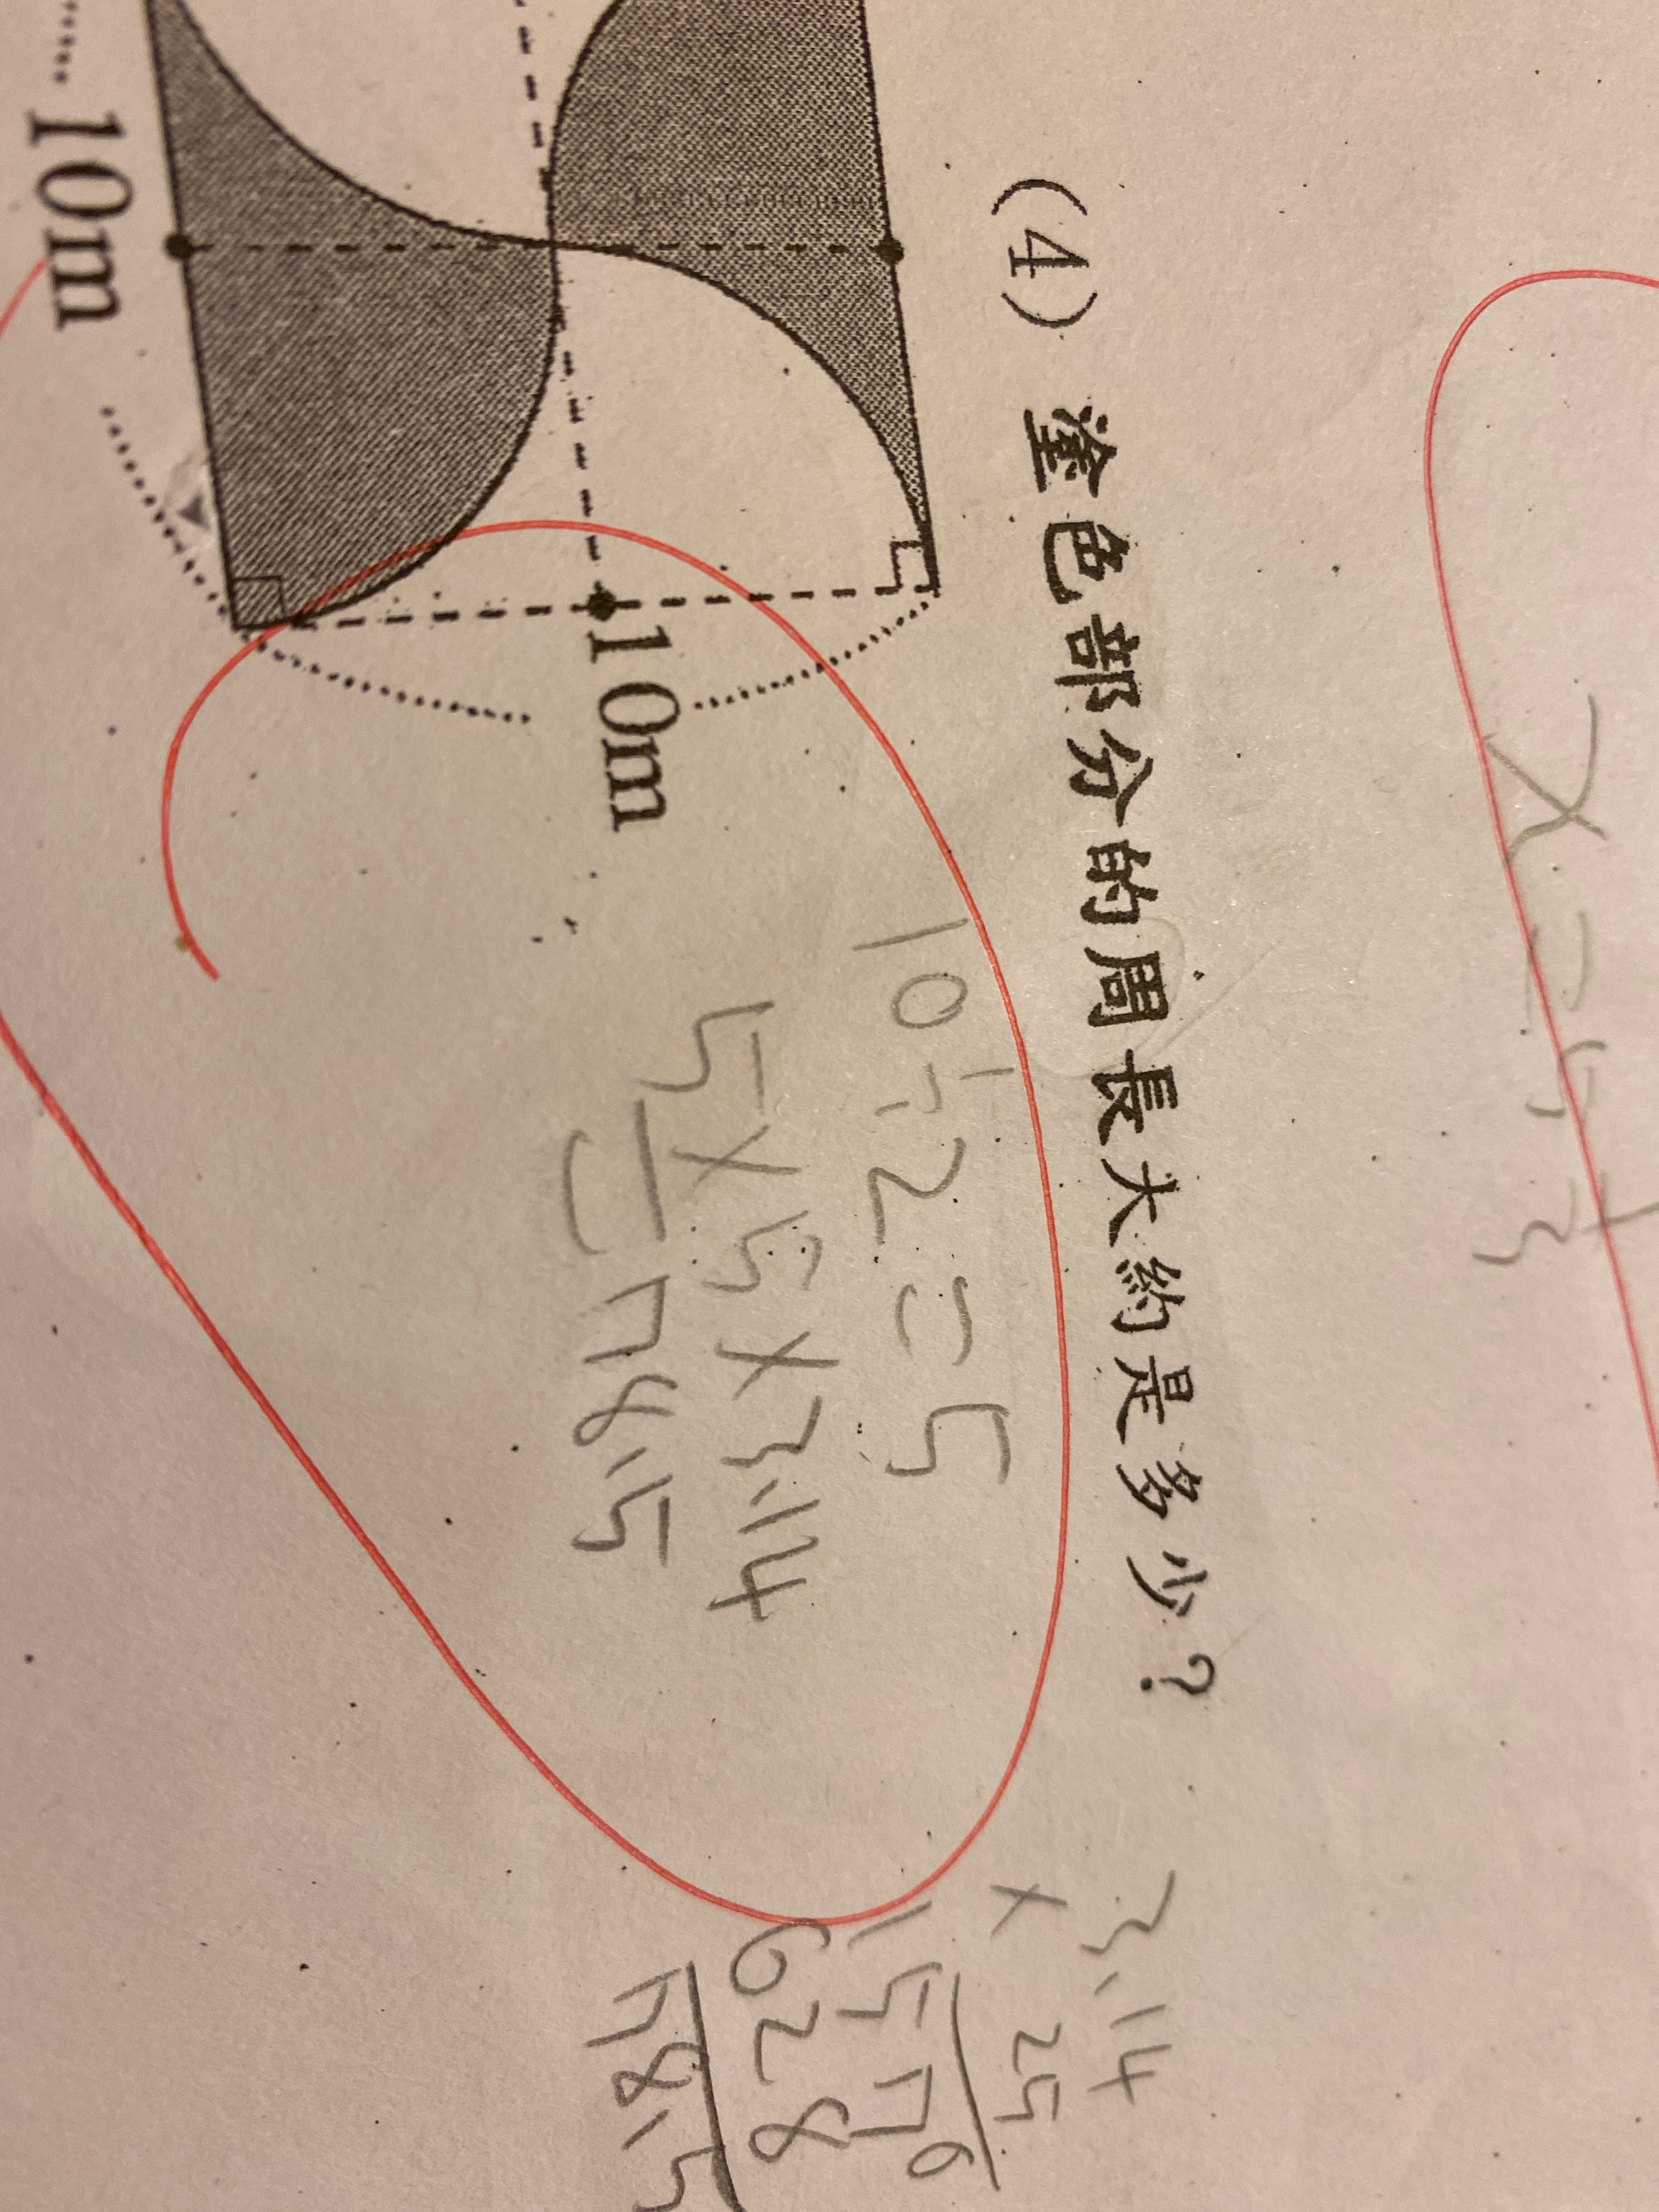 (4) 塗色部分的周長大約是多少？
10m
10m
10÷2=5
5×5×3.14
=78.5
3.14
× 25
1570
628
78.5